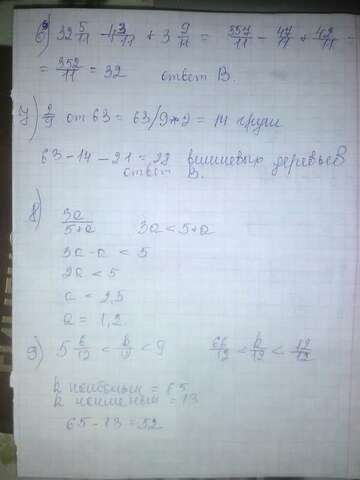 6) 32 5/11 - 4 3/11 + 3 9/11 = 357/11 - 47/11 + 42/11 =
= 352/11 = 32 ответ В.
7) 2/9 от 63 = 63/9*2 = 14 груш
63-14-21=28 вишневых деревьев
ответ В.
8) 3a/5+a 3a<5+a
3a-a<5
2a<5
a<2,5
a=1,2
9) 5 6/12 < k/12 < 9 66/12 < k/12 <
k наибольш = 65
k наименьш = 13
65-13=52